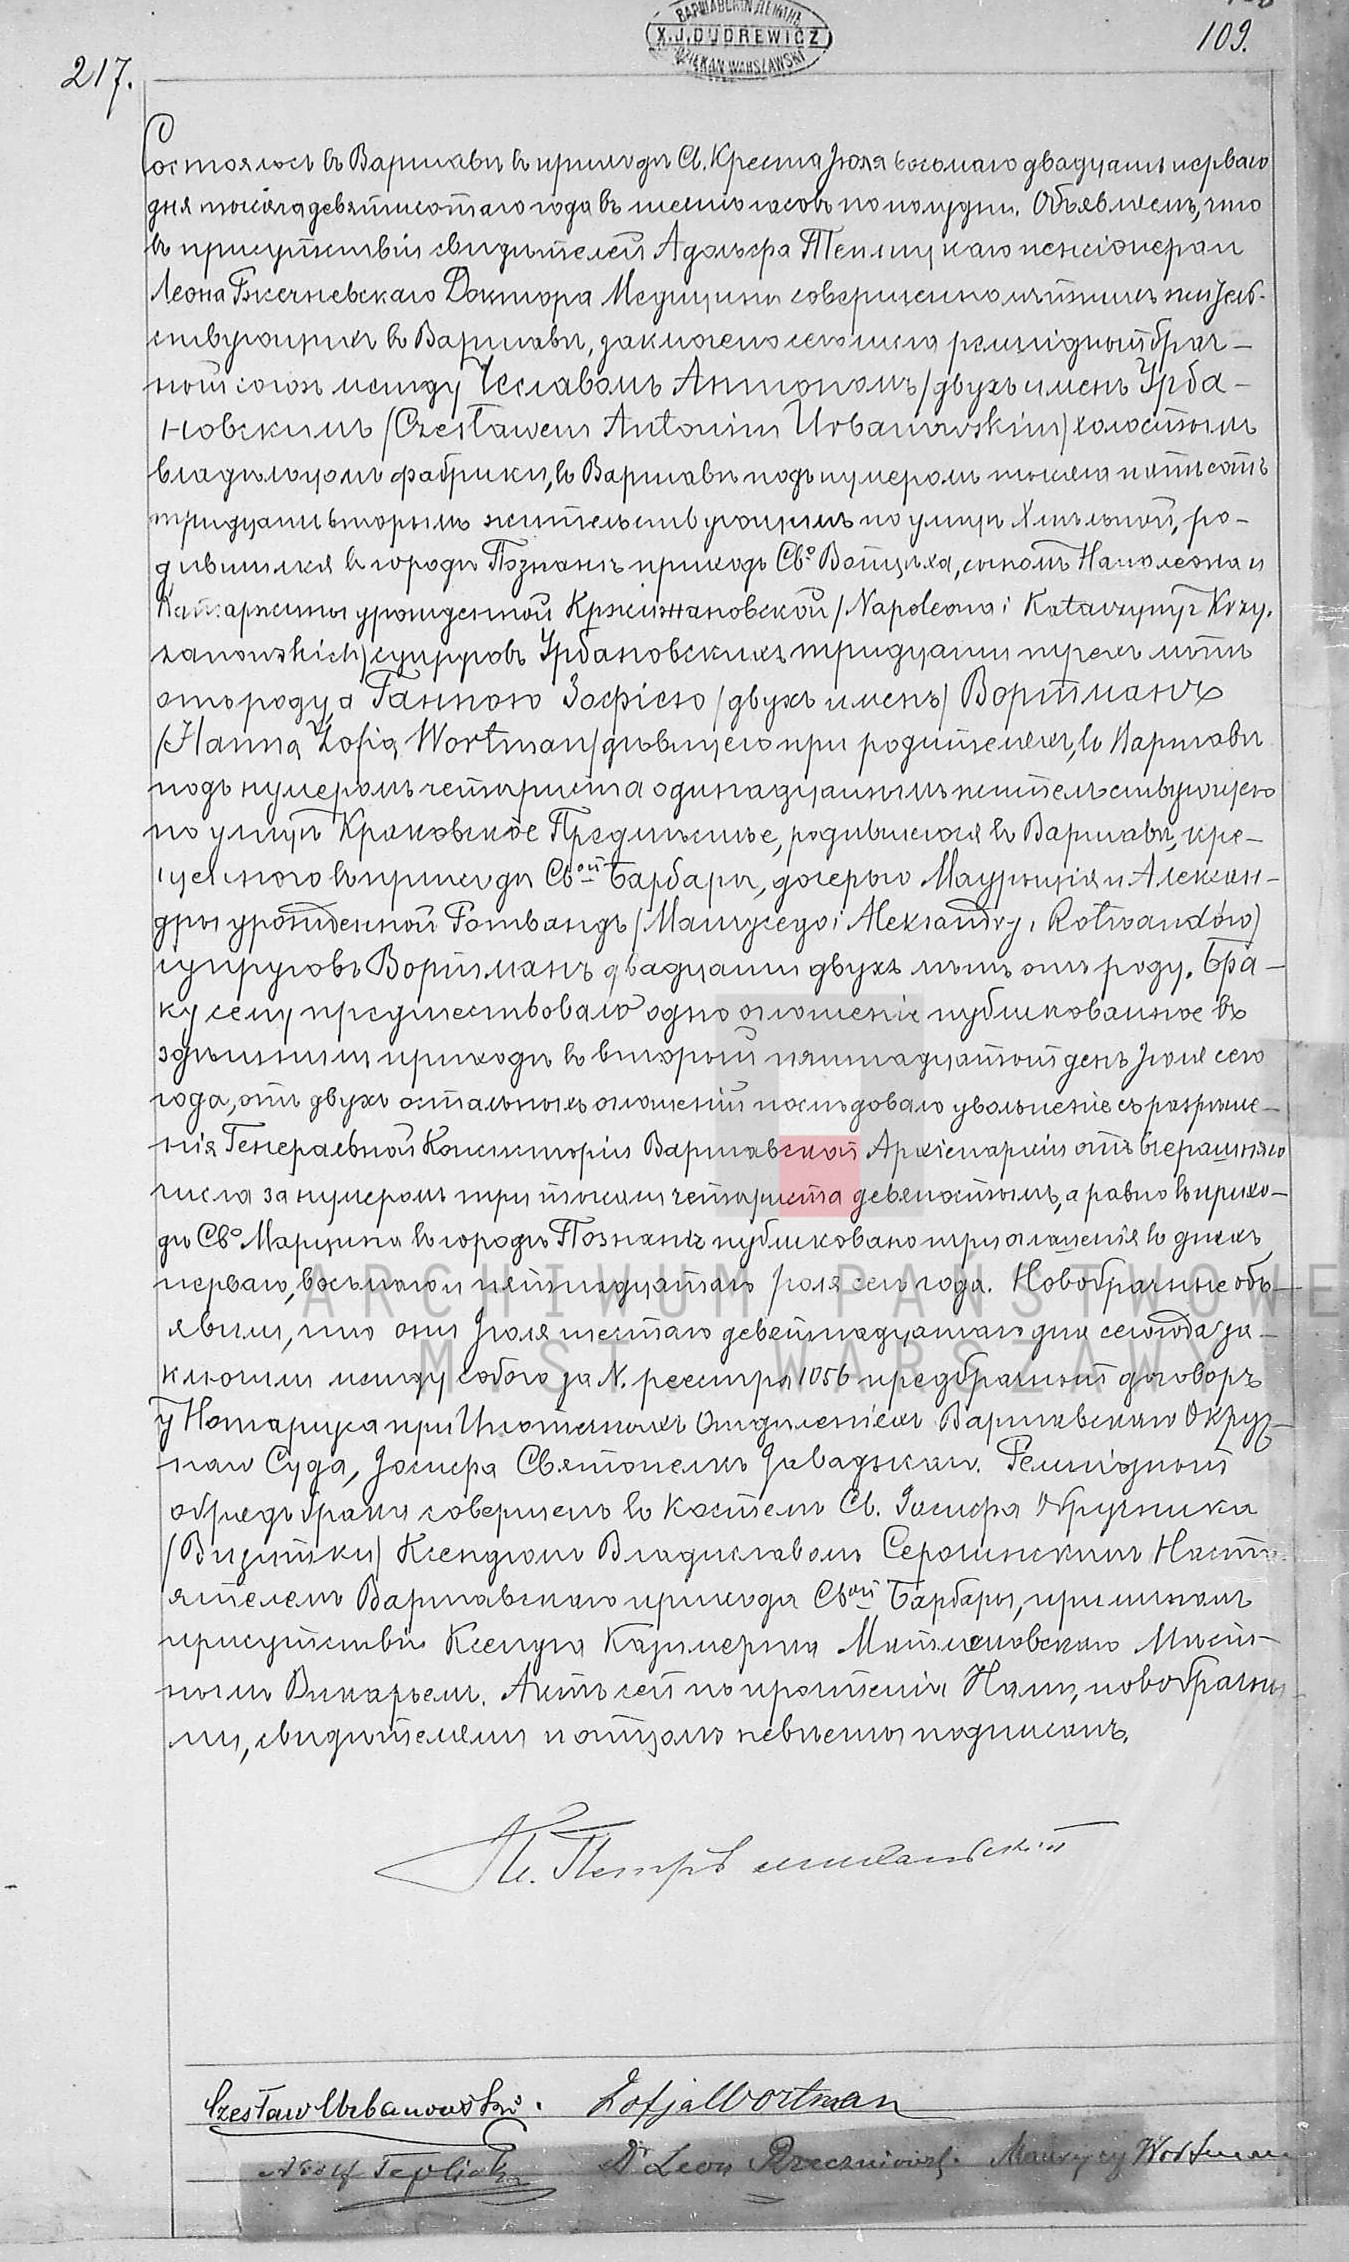 ВАРШАВСКІЙ ДЕКАНЪ
X. J. DUDREWICZ
DZIEKAN WARSZAWSKI
109.
217.
Состоялось въ Варшавѣ въ приходѣ Св. Креста Іюля восьмаго двадцать перваго
дня тысяча девятисотаго года въ шесть часовъ пополудни. Объявляемъ, что
въ присутствіи свидѣтелей Адольфа Теплицкаго пенсіонера и
Леона Бжечневскаго Доктора Медицины совершеннолѣтнихъ жительс-
ствующихъ въ Варшавѣ, заключенъ сего числа религіозный брач-
ный союзъ между Чеславомъ Антономъ /двухъ именъ Урба-
новскимъ /Czesławem Antonim Urbanowskim/ холостымъ
владѣльцомъ фабрики, въ Варшавѣ подъ нумеромъ тысяча пятьсотъ
тридцать вторымъ жительствующимъ по улицѣ Хмѣльной, ро-
дившимся въ городѣ Познанѣ приходѣ Свº Войцѣха, сыномъ Наполеона и
Катаржины урожденной Кржижановской /Napoleona i Katarzyny z Krzy.
zanowskich/ супруговъ Урбановскихъ тридцати трехъ лѣтъ
отъ роду, а Ганною Зофіею /двухъ именъ/ Вортманъ
/Hanna Zofia Wortman/ дѣвицею при родителяхъ, въ Варшавѣ
подъ нумеромъ четыриста одинадцатымъ жительствующею
по улицѣ Краковское Предмѣстье, родившеюся въ Варшавѣ, кре-
щенною въ приходѣ Свой Барбары, дочерью Маурыція и Алексан-
дры урожденной Ротвандъ /Maurycego i Aleksandry z Rotwandów/
супруговъ Вортманъ двадцати двухъ лѣтъ отъ роду. Бра-
ку сему предшествовало одно оглашеніе публикованное въ
здѣшнемъ приходѣ во вторый пятнадцатый день Іюля сего
года, отъ двухъ остальныхъ оглашеній послѣдовало увольненіе съ разрѣше-
нія Генеральной Консисторіи Варшавской Архіепархіи отъ вчерашняго
числа за нумеромъ три тысячи четыриста девяностымъ, а равно въ прихо-
дѣ Свº Марцина въ городѣ Познанѣ публиковано три оглашенія въ дняхъ
перваго, восьмаго и пятнадцатаго Іюля сего года. Новобрачные объ-
явили, что они Іюля шестаго девятнадцатаго дня сего года за-
ключили между собою за N. реестра 1056 предбрачный договоръ
у Нотаріуса при Ипотечныхъ Отдѣленіяхъ Варшавскаго Окруж-
наго Суда, Іосифа Святополкъ Завадзкаго. Религіозный
обрядъ брака совершенъ въ Костелѣ Св. Іосифа Обручника
/Визитки/ Ксендзомъ Владиславомъ Серошинскимъ Насто-
ятелемъ Варшавскаго прихода Свой Барбары, при личномъ
присутствіи Ксендза Казимержа Мѣст-
нымъ Викарьемъ. Актъ сей по прочтеніи Нами, новобрачны-
ми, свидѣтелями и отцомъ невѣсты подписанъ.
Czesław Urbanowski. Zofja Wortman
Adolf Teplicki Dr Leon Rzeczniowski. Maurycy Wortman
ARCHIWUM PAŃSTWOWE
M. ST. WARSZAWY